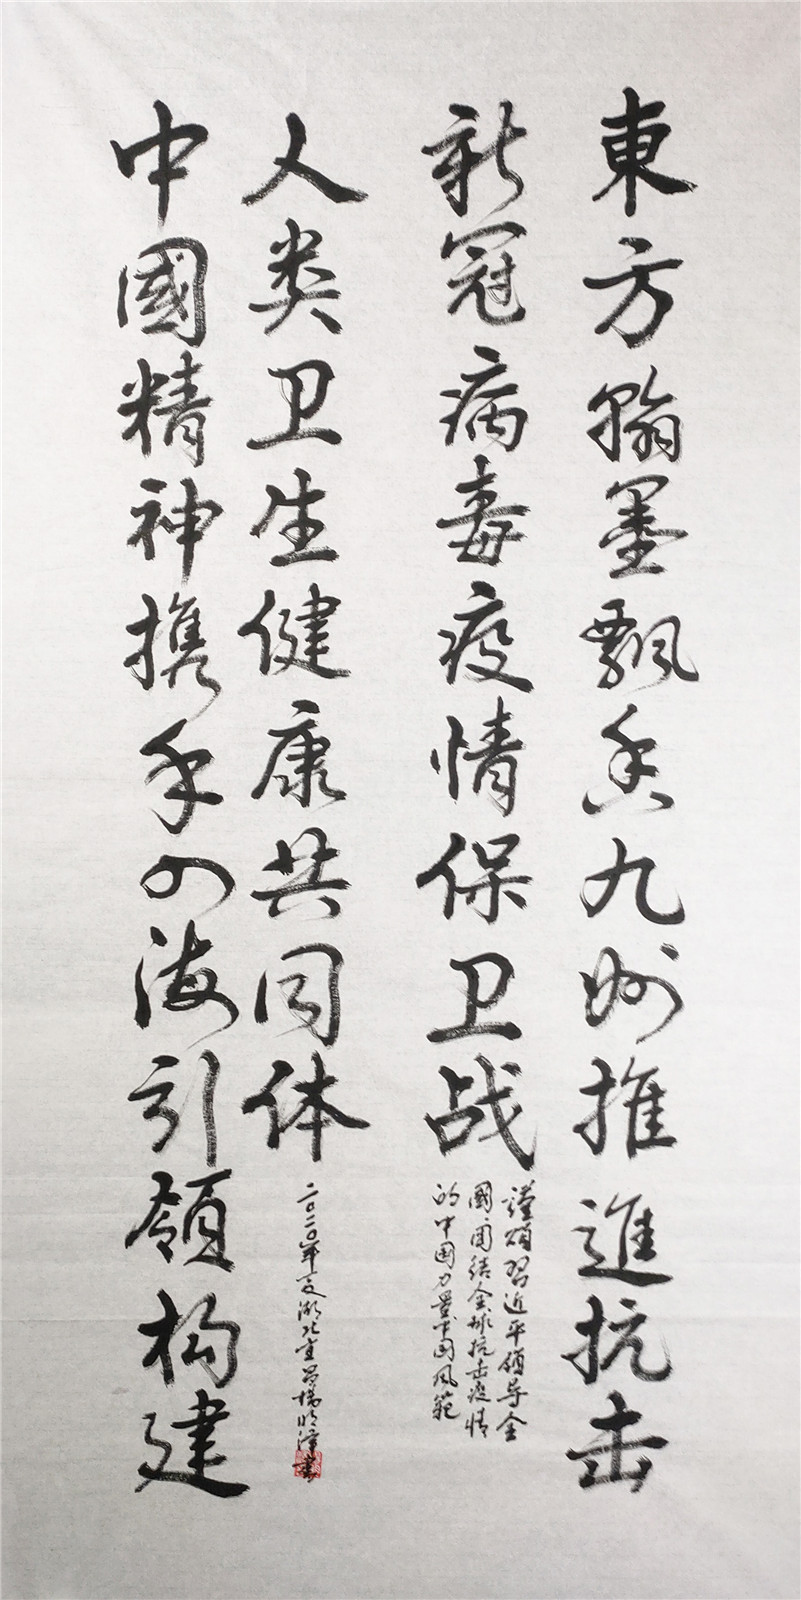 東方翰墨飘香九州推進抗击
新冠病毒疫情保卫战
謹頌習近平领导全
國团结全球抗击疫情
的中国力量中国风範
中國精神携手四海引領构建
人类卫生健康共同体
二〇二〇年夏湖北宜昌